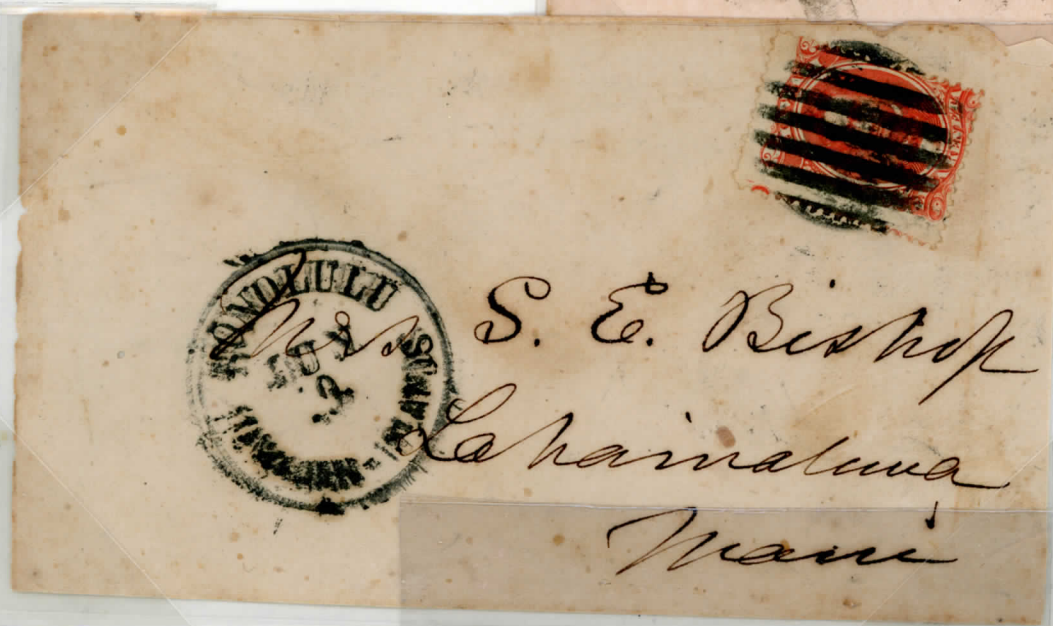 HONOLULU
HAWAIIAN - ISLANDS
Mrs S. E. Bishop
Lahainaluna
Maui